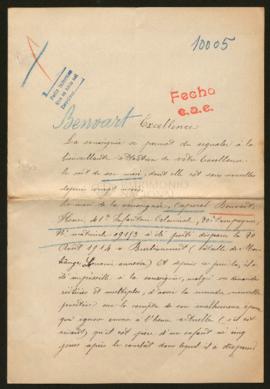 10005
Fecho
e.a.e.
Benvart
Excellence
La soussignée se permet de signaler à la
bienveillante attention de votre Excellence
le cas de son mari, dont elle est sans nouvelles
depuis vingt mois.
Le mari de la soussignée, Caporal Benvart
Henri 41e Infanterie Colonial, 30e Compagnie,
No matricule a été porté disparu le 20
Août 1914 à (bataille de
Lorraine annexée). Et depuis ce jour, il a
été impossible à la soussignée, malgré des demandes
réitérées et multiples, d'avoir la moindre nouvelle
positive sur le compte de son malheureux époux,
qui ignore encore à l'heure actuelle (s'il est
vivant) qu'il est père d'un enfant né cinq
jours après le combat dans lequel il a disparu